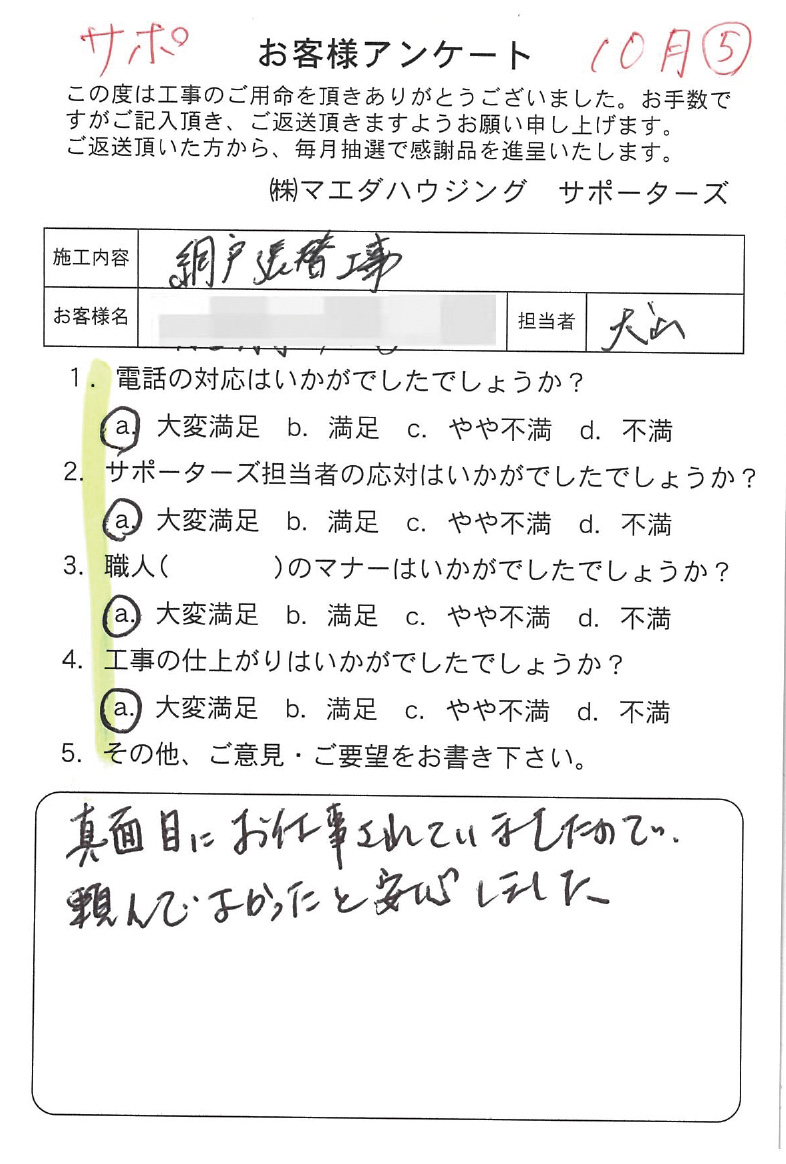 サポ お客様アンケート 10月⑤
この度は工事のご用命を頂きありがとうございました。お手数で
すがご記入頂き、ご返送頂きますようお願い申し上げます。
ご返送頂いた方から、毎月抽選で感謝品を進呈いたします。
㈱マエダハウジング サポーターズ
施工内容 網戸張替工事
お客様名 担当者 大山
1. 電話の対応はいかがでしたでしょうか？
a. 大変満足 b. 満足 c. やや不満 d. 不満
2. サポーターズ担当者の応対はいかがでしたでしょうか？
a. 大変満足 b. 満足 c. やや不満 d. 不満
3. 職人( )のマナーはいかがでしたでしょうか？
a. 大変満足 b. 満足 c. やや不満 d. 不満
4. 工事の仕上がりはいかがでしたでしょうか？
a. 大変満足 b. 満足 c. やや不満 d. 不満
5. その他、ご意見・ご要望をお書き下さい。
真面目にお仕事されていましたので、
頼んでよかったと安心しました